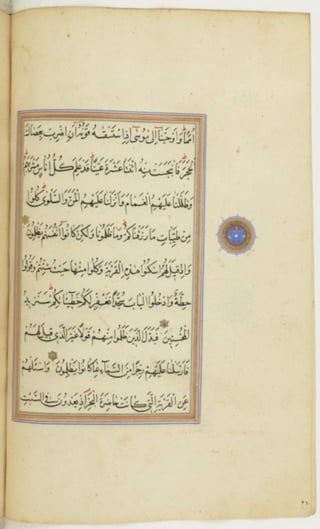 أمما وأوحينا إلى موسى إذ استسقىه قومه أن اضرب بعصاك
الحجر فانبجست منه اثنتا عشرة عينا قد علم كل أناس مشربهم
وظللنا عليهم الغمام وأنزلنا عليهم المن والسلوى كلوا
من طيبات ما رزقناكم وما ظلمونا ولكن كانوا أنفسهم يظلمون
وإذ قيل لهم اسكنوا هذه القرية وكلوا منها حيث شئتم وقولوا
حطة وادخلوا الباب سجدا نغفر لكم خطيئاتكم سنزيد
المحسنين فبدل الذين ظلموا منهم قولا غير الذي قيل لهم
فأرسلنا عليهم رجزا من السماء بما كانوا يظلمون واسئلهم
عن القرية التي كانت حاضرة البحر إذ يعدون في السبت